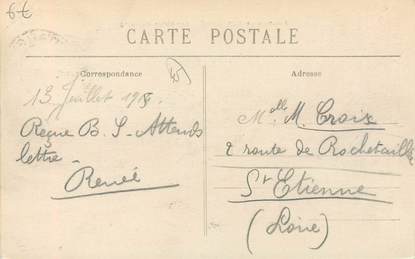 6€
CARTE POSTALE
Correspondance
Adresse
13 Juillet
Reçue B. S. Attends
lettre.
Renée
Mlle M. Croix
2 route de Rochetaillée
St Etienne
(Loire)